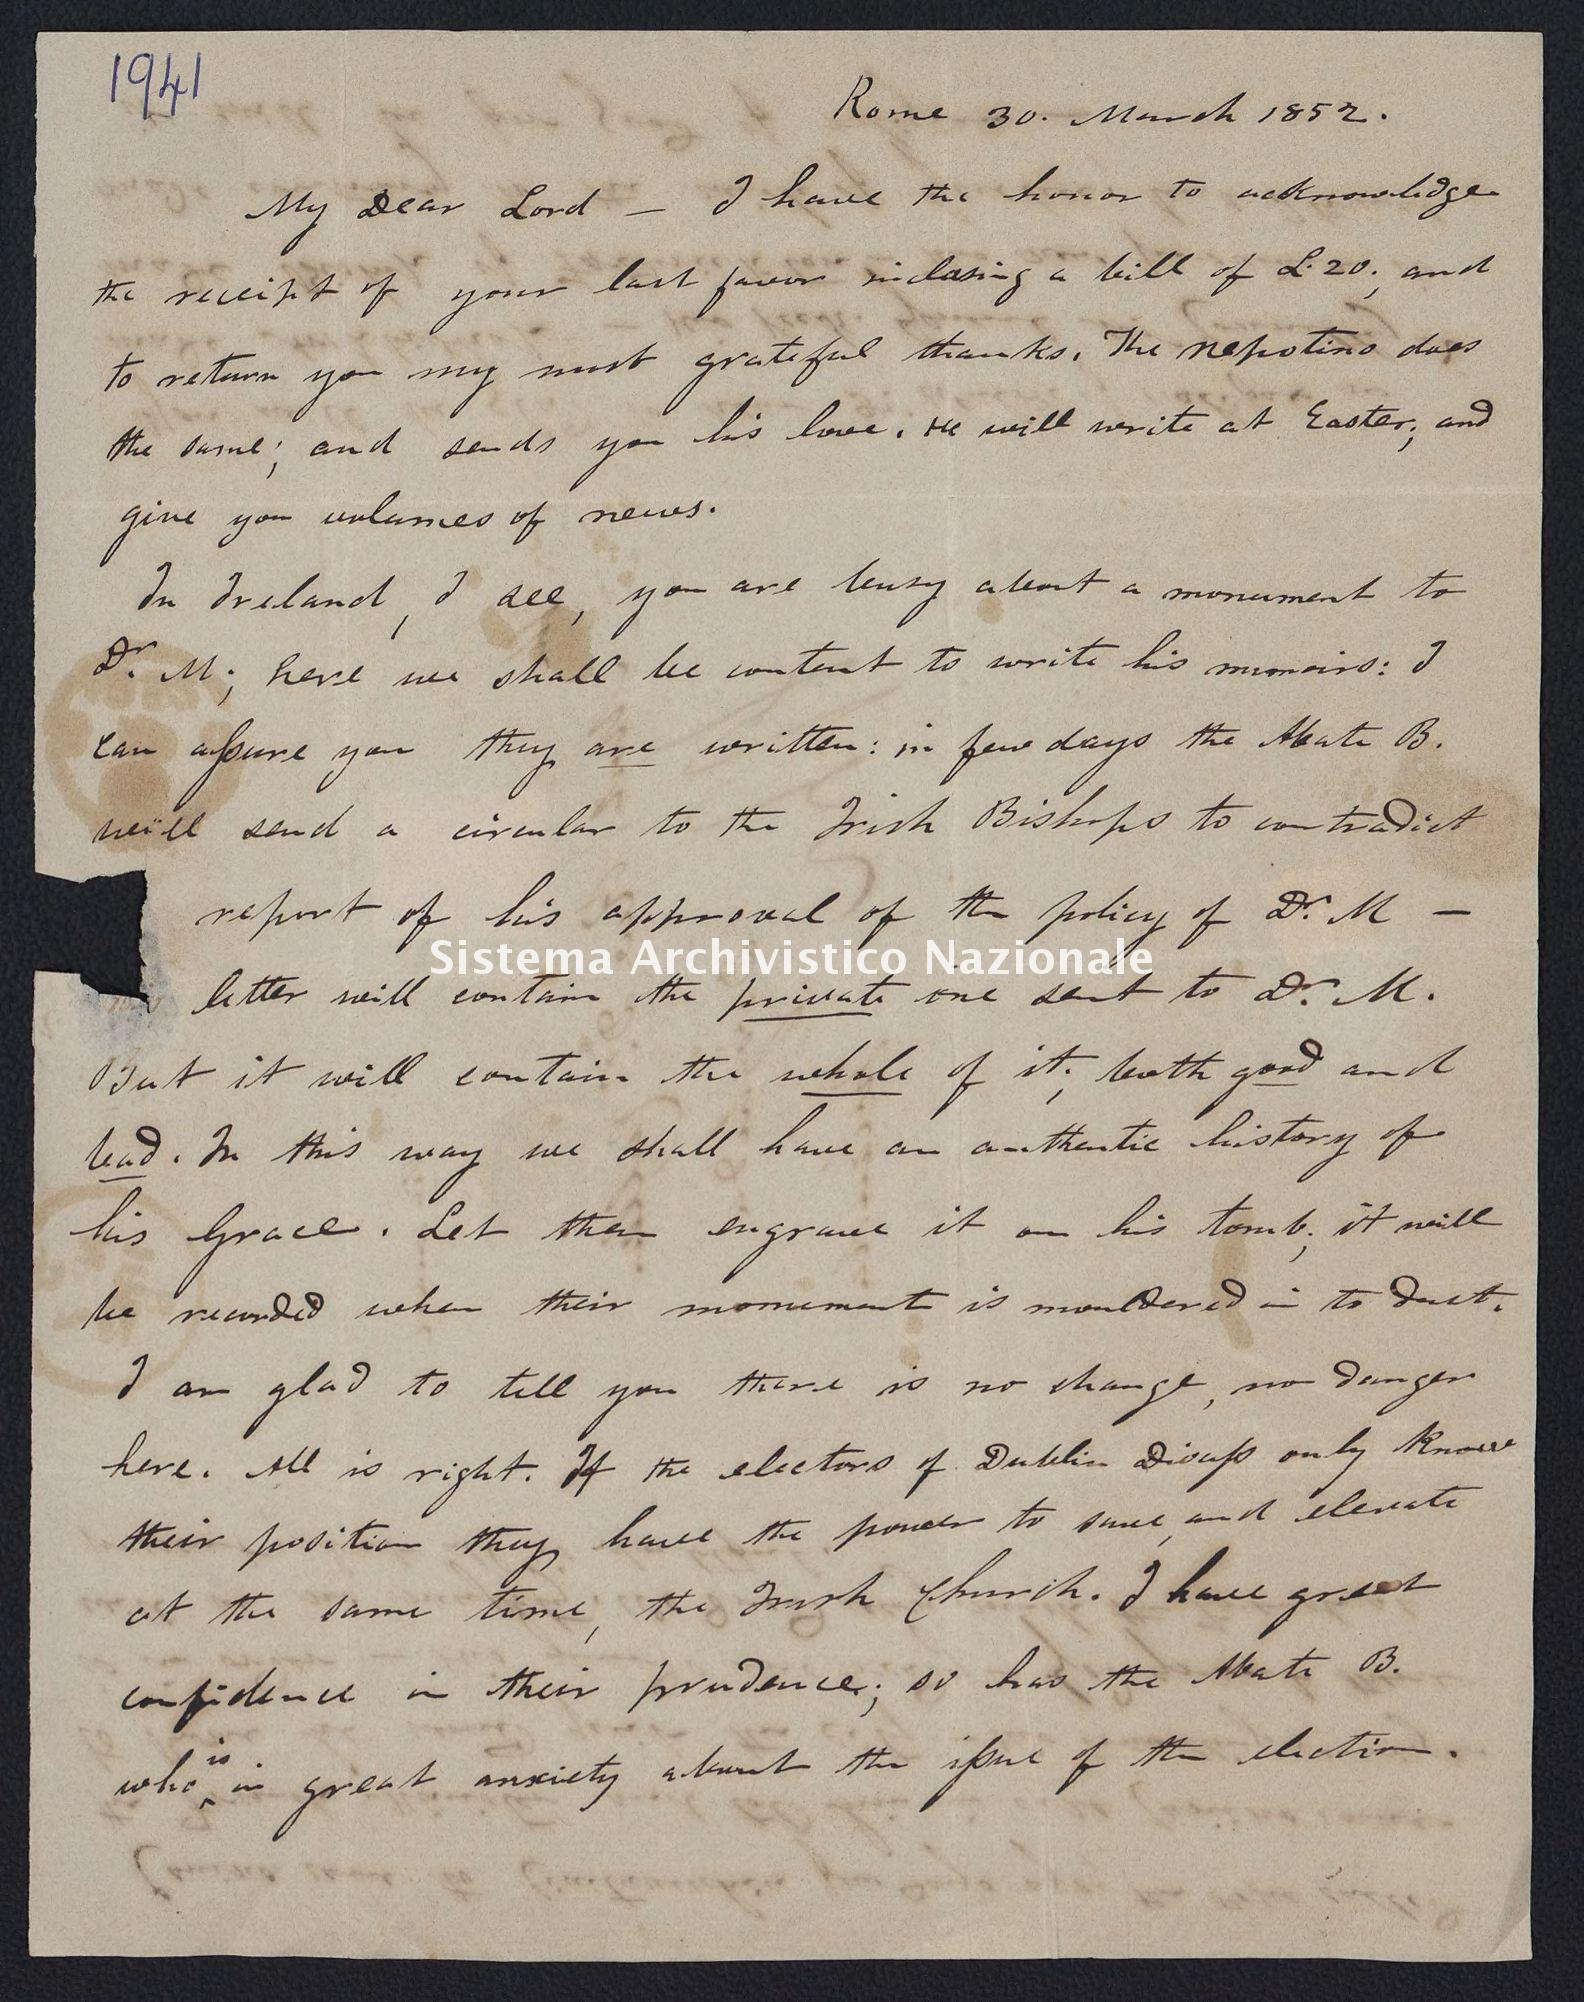 1941
Rome 30. March 1852.
My Dear Lord — I have the honor to acknowledge
the receipt of your last favor inclosing a bill of £.20; and
to return you my most grateful thanks. The nepotino does
the same; and sends you his love. He will write at Easter; and
give you volumes of news.
In Ireland, I see, you are busy about a monument to
Dr. M; here we shall be content to write his memoirs: I
can assure you they are written: in few days the Abate B.
will send a circular to the Irish Bishops to contradict
report of his approval of the policy of Dr. M —
letter will contain the private one sent to Dr. M.
But it will contain the whole of it; both good and
bad. In this way we shall have an authentic history of
his Grace. Let them engrave it on his tomb; it will
be recorded when their monument is mouldered in to dust.
I am glad to tell you there is no change, no danger
here. All is right. If the electors of Dublin Diocess only knowe
their position they have the power to save, and elevate
at the same time, the Irish Church. I have great
confidence in their prudence; so has the Abate B.
who is in great anxiety about the issue of the election.
Sistema Archivistico Nazionale